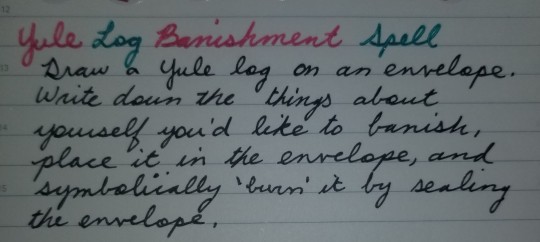 12
Yule Log Banishment Spell
13
Draw a Yule log on an envelope.
Write down the things about
14
yourself you'd like to banish,
place it in the envelope, and
15
symbolically 'burn' it by sealing
the envelope.